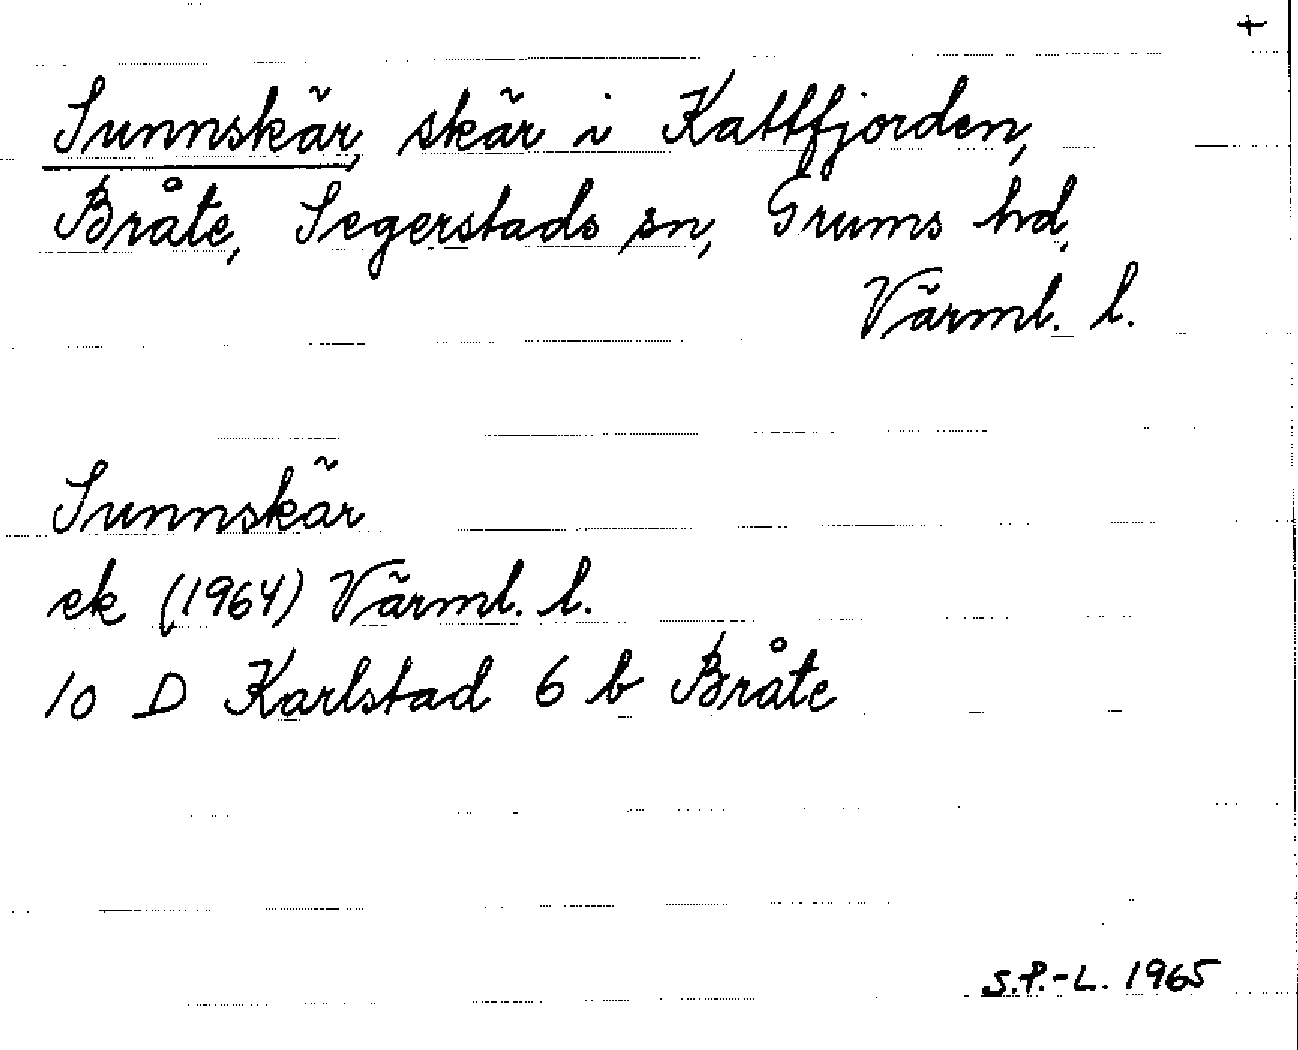 +
Sunnskär, skär i Kattfjorden,
Bråte, Segerstads sn, Grums hd,
Värml. l.
Sunnskär
ek (1964) Värml. l.
10 D Karlstad 6 b Bråte
S.P.-L. 1965